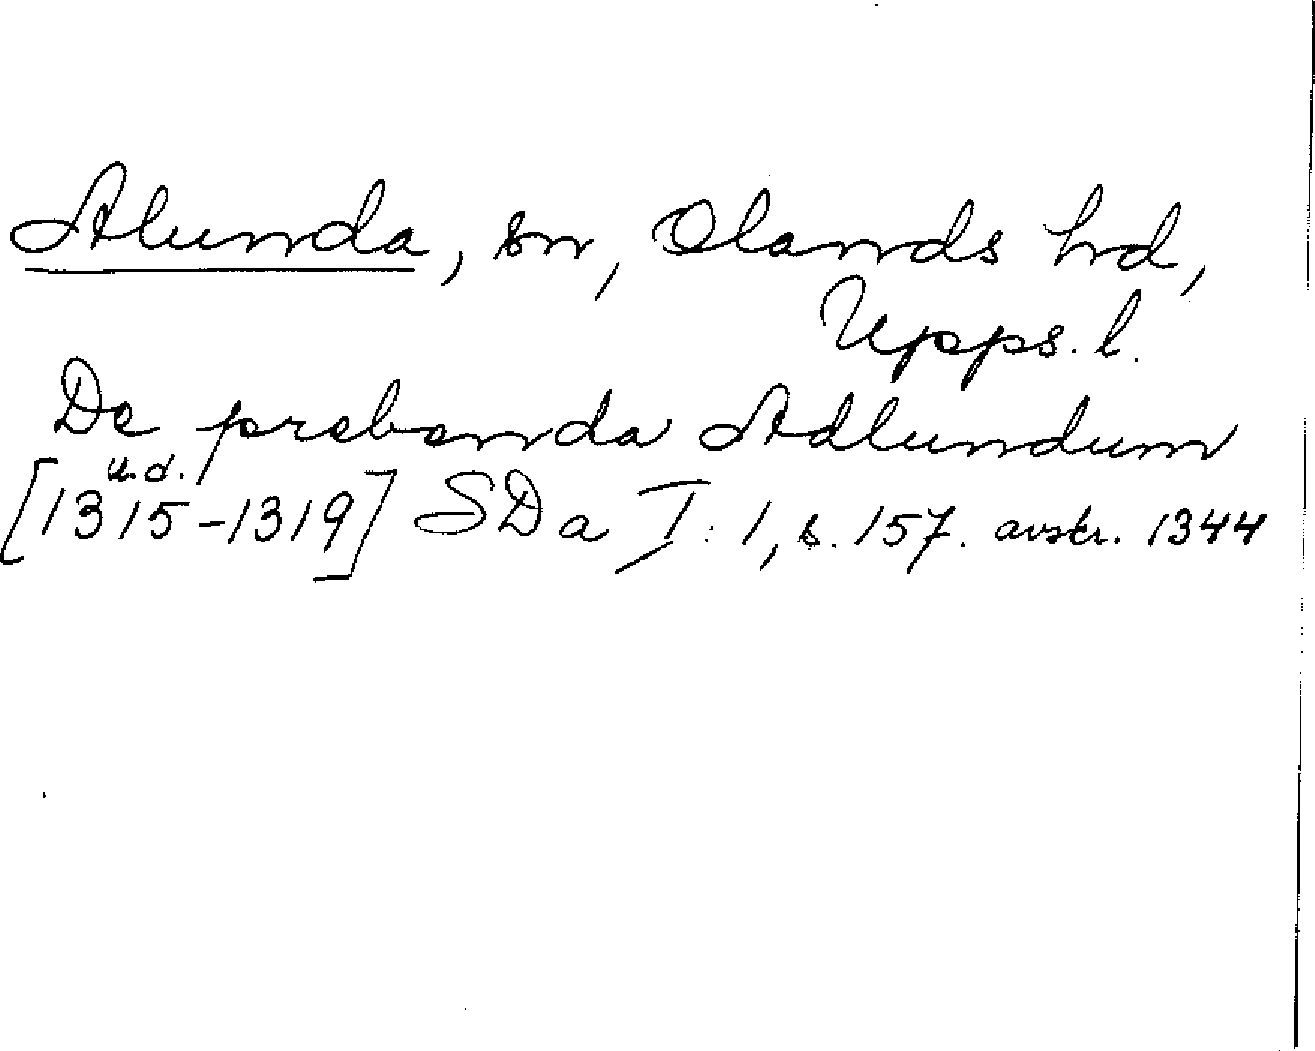 Alunda, sn, Olands hd,
Upps. l.
De prebenda Adlundum
u.d.
[1315-1319] SDa I:1, s. 157. avskr. 1344